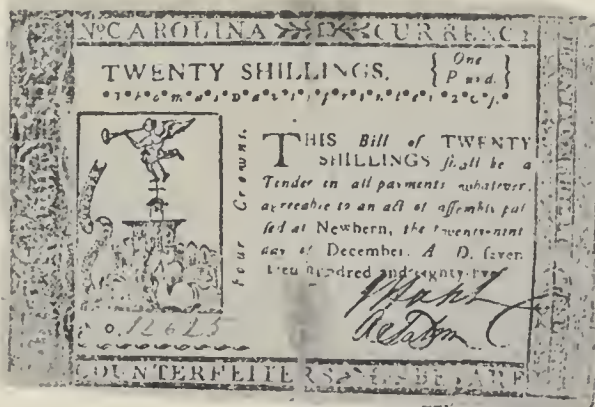 NºCAROLINA CURRENCY
TWENTY SHILLINGS.
One
Pound.
Four Crowns.
THIS Bill of TWENTY
SHILLINGS ſhall be a
Tender in all payments whatever,
agreeable to an act of aſſembly paſ
ſed at Newbern, the twenty-nint
day of December. A. D. ſeven
teen hundred and eighty-five
No. 12625
COUNTERFEITERS BEWARE